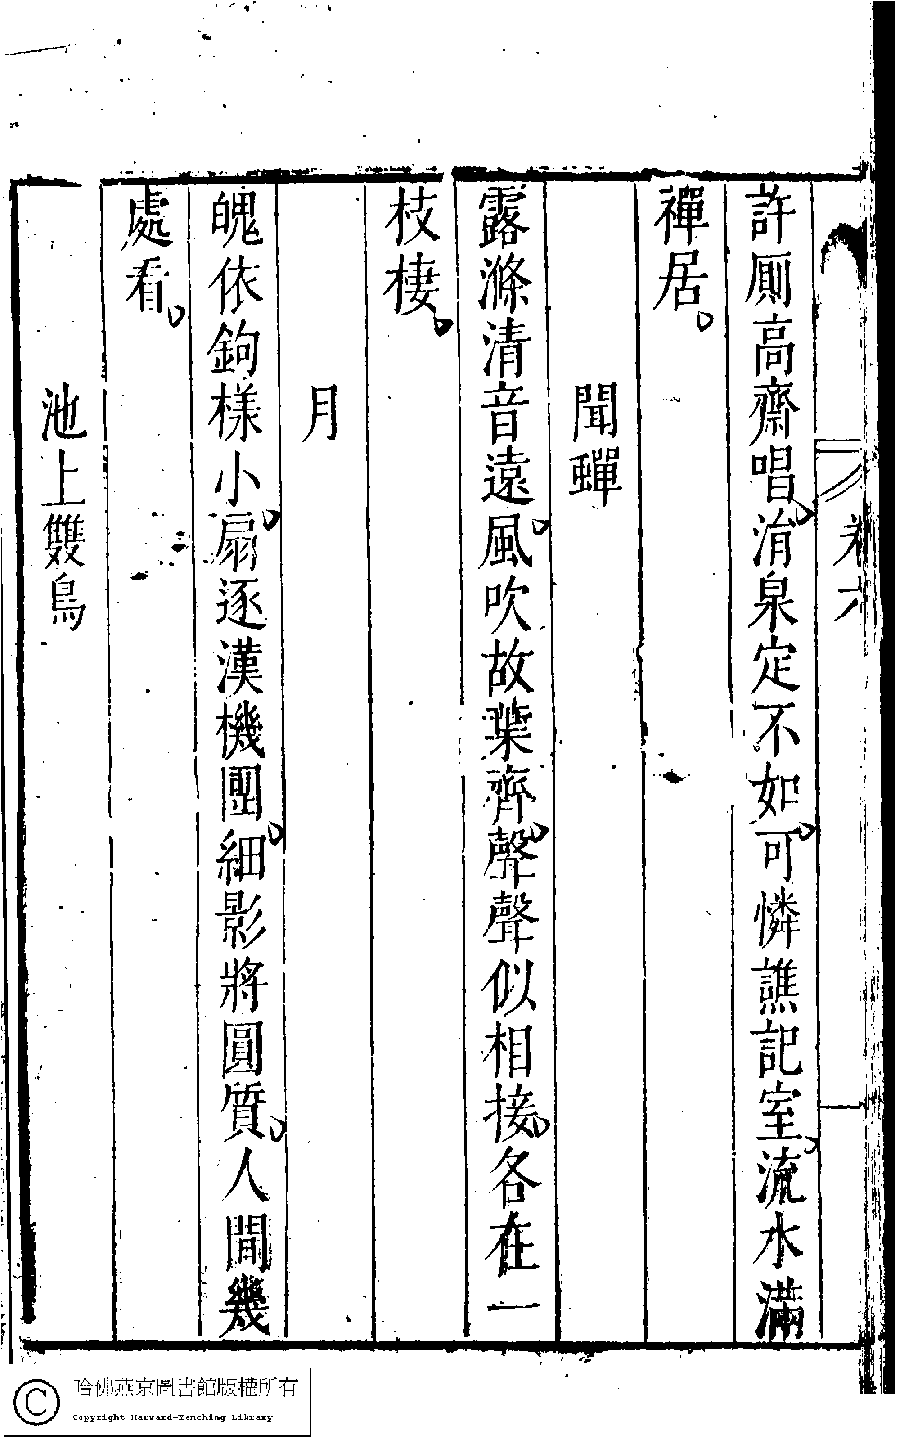 卷六
許厠高齋唱涓泉定不如可憐譙記室流水滿
禪居
聞蟬
露滌清音遠風吹故葉齊聲聲似相接各在一
枝棲
月
魄依鉤樣小扇逐漢機團細影將圓質人間幾
處看
池上雙鳥
哈佛燕京圖書館版權所有
Copyright Harvard-Yenching Library